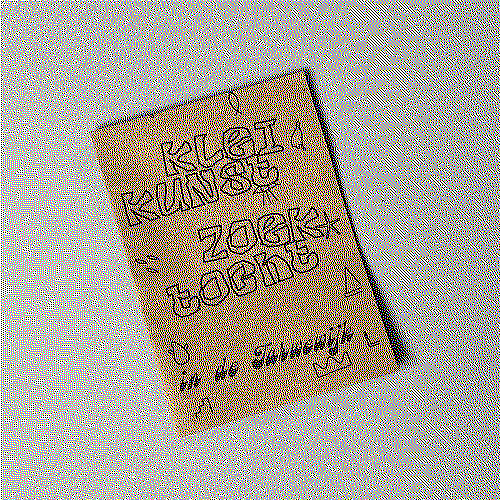 KLEI
KUNST
ZOEK
tocht
in de